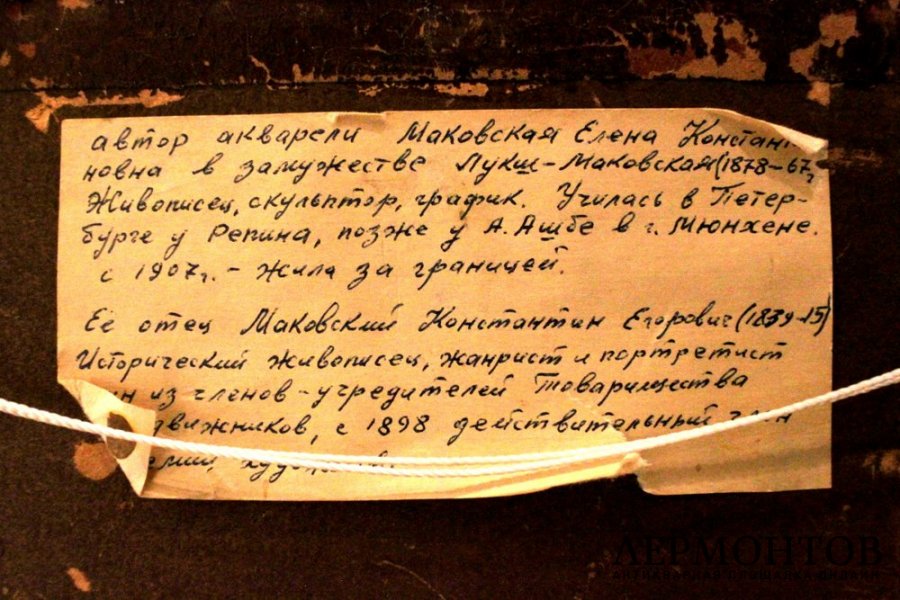 автор акварели Маковская Елена Констан
новна в замужестве Лукш-Маковская (1878-67г
Живописец, скульптор, график. Училась в Петер-
бурге у Репина, позже у А. Ашбе в г. Мюнхене.
с 1907г. - жила за границей.
Её отец Маковский Константин Егорович (1839-15)
Исторический живописец, жанрист и портретист
ин из членов-учредителей Товарищества
движников, с 1898 действительный член
емии
ЛЕРМОНТОВ